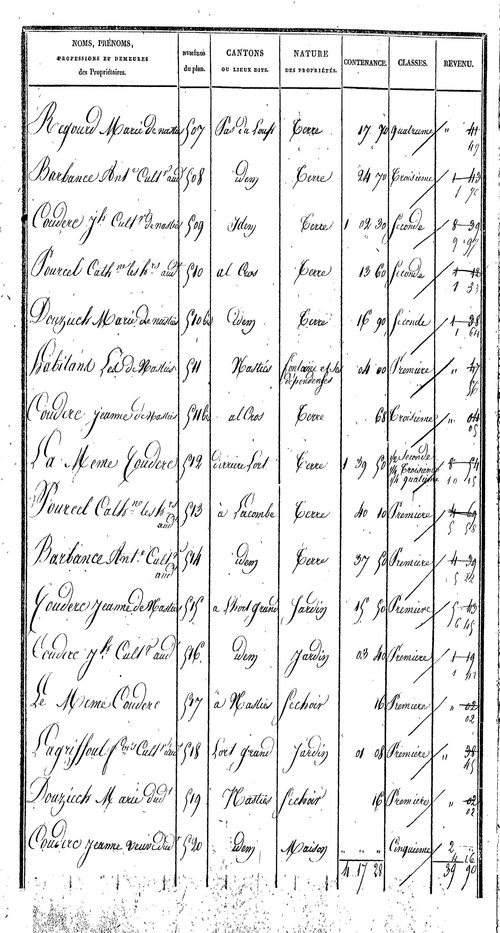 NOMS, PRÉNOMS, PROFESSIONS ET DEMEURES des Propriétaires. NUMÉROS du plan. CANTONS OU LIEUX DITS. NATURE DES PROPRIÉTÉS. CONTENANCE. CLASSES. REVENU.
Regourd Marie de nastiés 507 Pas du Terre 17 70 quatrieme " 41
47
Barbance Ant.e Cult.r aud.t 508 idem Terre 24 70 Troisième 1 43
1 70
Couderc J.h Cult.r de nastiés 509 Idem Terre 1 02 30 Seconde 8 39
9 97
Pourcel Cath.ne les h.rs aud.t 510 al Cros Terre 13 60 Seconde 1 12
1 33
Douziech Marie de nastiés 510 bis Idem Terre 16 90 Seconde 1 38
1 64
habitans Les de Nastiés 511 Nastiés fontaine et ses dépendences 04 00 Première " 47
56
Couderc jeanne de Nastiés 511 bis al Cros Terre 68 Troisième " 04
05
La Meme Couderc 512 derriere Lort Terre 1 39 50 Seconde Troisieme quatrieme 8 54
10 15
Pourcel Cath.ne les h.rs aud.t 513 à Lacombe Terre 40 10 Première 4 69
5
Barbance Ant.e Cult.r aud.t 514 idem Terre 37 50 Première 4 39
5
Couderc jeanne de Nastiés 515 a Lhort grand Jardin 15 50 Première 5 43
6 45
Couderc J.h Cult.r aud.t 516 idem Jardin 03 40 Première 1 19
1 42
Le Meme Couderc 517 à Nastiés Sechoir 16 Première " 02
02
Lagriffoul f.cois Cult.r aud.t 518 Lort grand Jardin 01 08 Première " 38
45
Douziech Marie dud.t 519 Nastiés Sechoir 16 Première " 02
02
Couderc jeanne veuve dud.t 520 idem Maison " " " Cinquieme 2
4 17 28 39 90